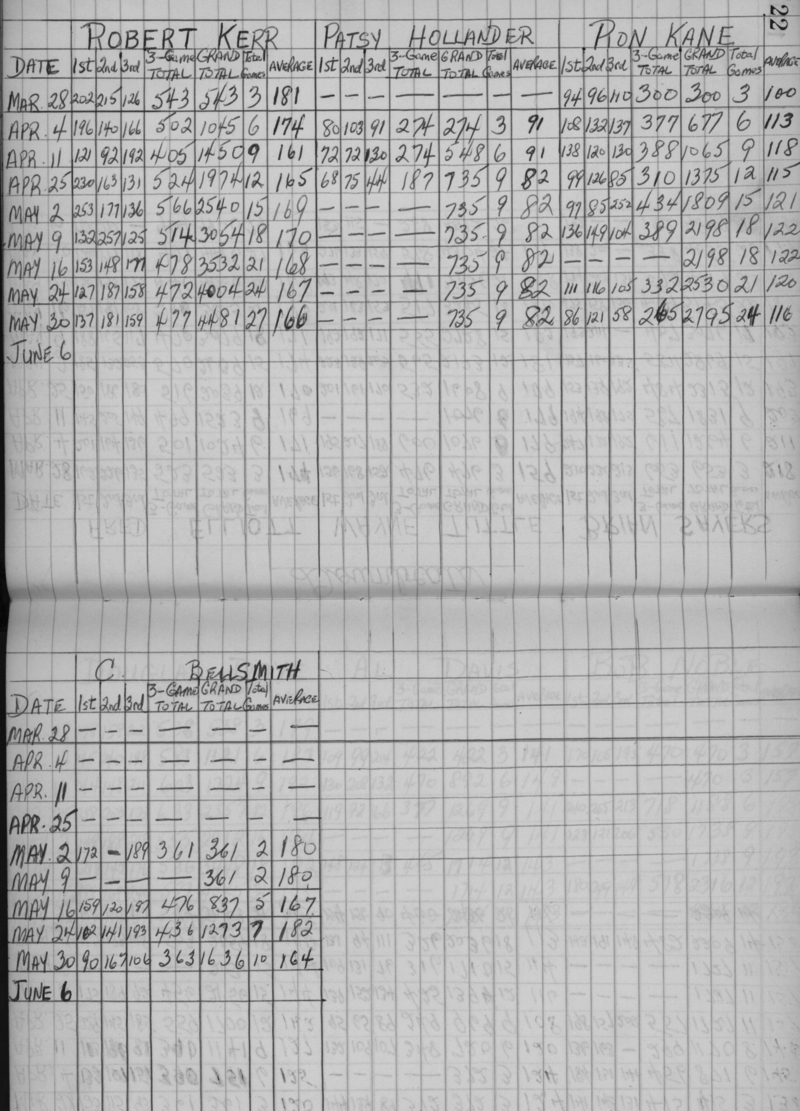 22
ROBERT KERR PATSY HOLLANDER RON KANE
DATE 1st 2nd 3rd 3-Game TOTAL GRAND TOTAL Total Games AVERAGE 1st 2nd 3rd 3-Game TOTAL GRAND TOTAL Total Games AVERAGE 1st 2nd 3rd 3-Game TOTAL GRAND TOTAL Total Games AVERAGE
MAR. 28 202 215 126 543 543 3 181 — — — — — — — 94 96 110 300 300 3 100
APR. 4 196 140 166 502 1045 6 174 80 103 91 274 274 3 91 108 132 137 377 677 6 113
APR. 11 121 92 192 405 1450 9 161 72 72 130 274 548 6 91 138 120 130 388 1065 9 118
APR. 25 230 163 131 524 1974 12 165 68 75 44 187 735 9 82 99 126 85 310 1375 12 115
MAY 2 253 177 136 566 2540 15 169 — — — — 735 9 82 97 85 252 434 1809 15 121
MAY 9 132 257 125 514 3054 18 170 — — — — 735 9 82 136 149 104 389 2198 18 122
MAY 16 153 148 177 478 3532 21 168 — — — — 735 9 82 — — — — 2198 18 122
MAY 24 127 187 158 472 4004 24 167 — — — — 735 9 82 111 116 105 332 2530 21 120
MAY 30 137 181 159 477 4481 27 166 — — — — 735 9 82 86 121 58 265 2795 24 116
JUNE 6
C. BELLSMITH
DATE 1st 2nd 3rd 3-GAME TOTAL GRAND TOTAL Total Games AVERAGE
MAR. 28 — — — — — — —
APR. 4 — — — — — — —
APR. 11 — — — — — — —
APR. 25 — — — — — — —
MAY 2 172 — 189 361 361 2 180
MAY 9 — — — — 361 2 180
MAY 16 159 120 197 476 837 5 167
MAY 24 102 141 193 436 1273 7 182
MAY 30 90 167 106 363 1636 10 164
JUNE 6